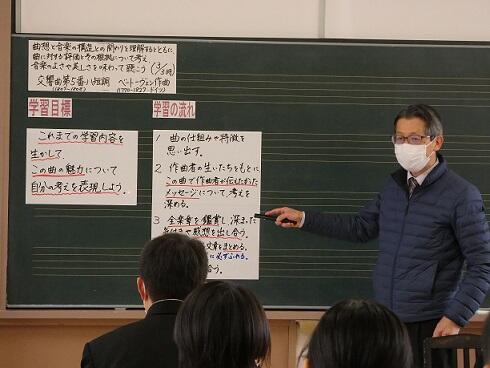 曲想と音楽の構造との関わりを理解するとともに、
曲に対する評価とその根拠について考え、
音楽のよさや美しさを味わって聴こう (3/3時)
交響曲第5番ハ短調 ベートーヴェン作曲
(1807〜1808) (1770-1827 ドイツ)
学習目標
これまでの学習内容を
生かして、
この曲の魅力について
自分の考えを表現しよう。
学習の流れ
1 曲の仕組みや特徴を
思い出す。
2 作曲者の生いたちをもとに
この曲で作曲者が伝えたかった
メッセージについて考えを
深める。
3 全楽章を鑑賞し、深まった
や感想を出し合う。
文章をまとめる。
に必ずふれる。
合う。